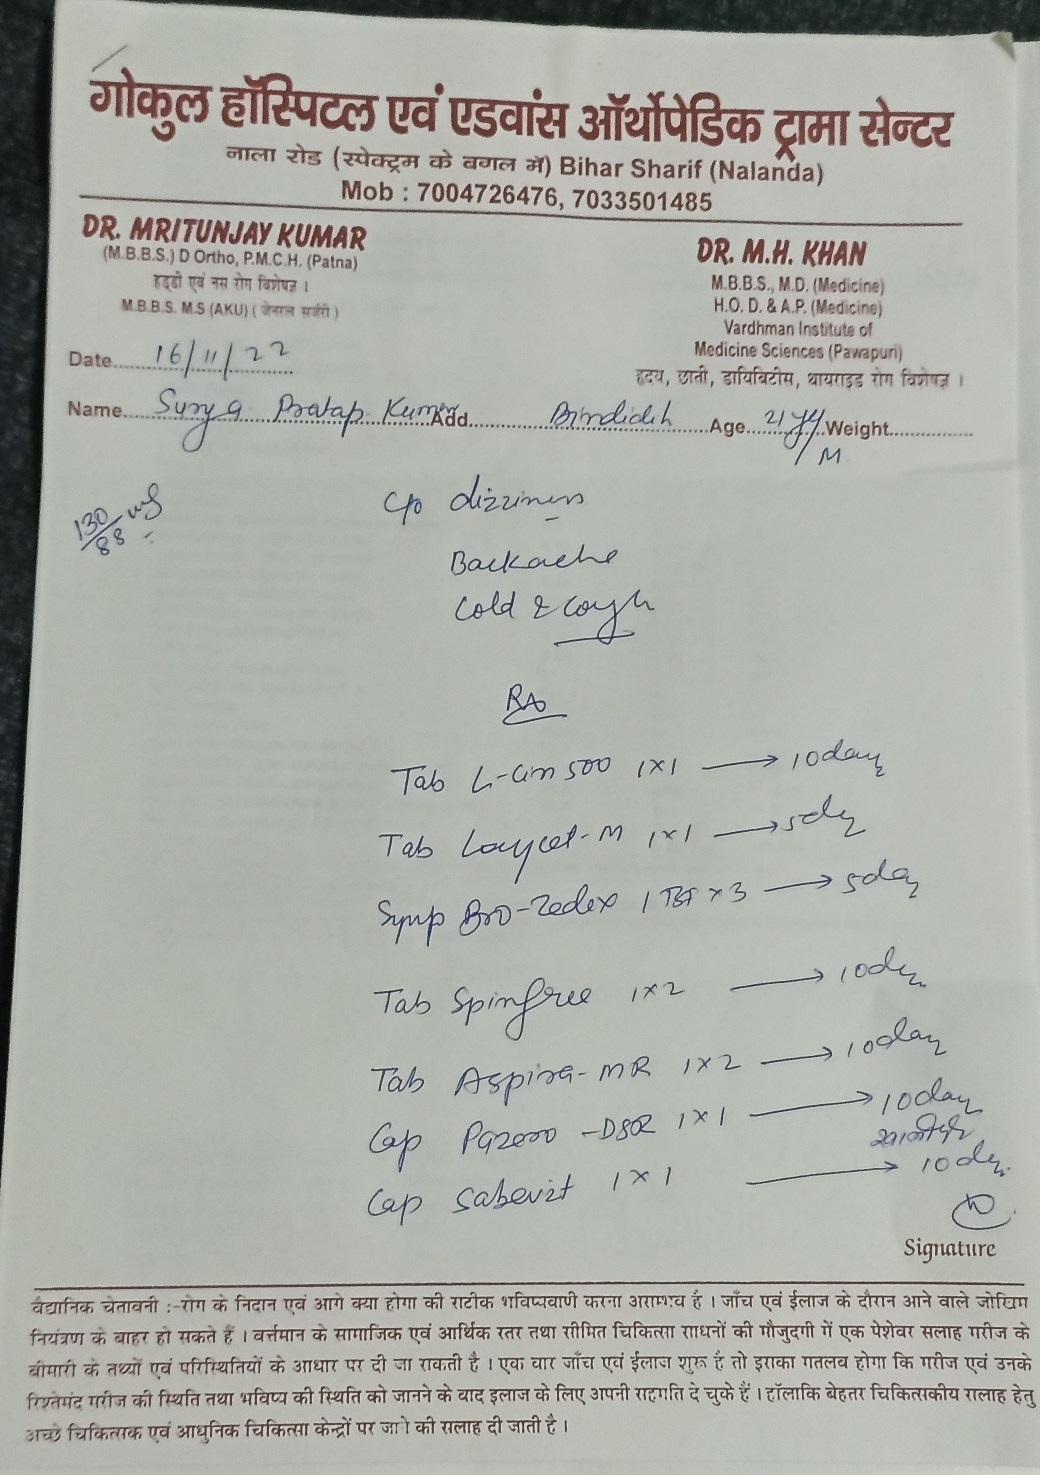 गोकुल हॉस्पिटल एवं एडवांस ऑर्थोपेडिक ट्रामा सेन्टर
नाला रोड (स्पेक्ट्रम के बगल में) Bihar Sharif (Nalanda)
Mob : 7004726476, 7033501485
DR. MRITUNJAY KUMAR
(M.B.B.S.) D Ortho, P.M.C.H. (Patna)
हड्डी एवं नस रोग विशेषज्ञ ।
M.B.B.S. M.S (AKU) ( जेनरल सर्जरी )
DR. M.H. KHAN
M.B.B.S., M.D. (Medicine)
H.O. D. & A.P. (Medicine)
Vardhman Institute of
Medicine Sciences (Pawapuri)
हृदय, छाती, डायिबिटीस, थायराइड रोग विशेषज्ञ ।
Date 16/11/22
Name Surya Pratap Kumar Add. Bindidih Age 21 Weight
M
130/88
c/o dizziness
Backache
Cold & cough
Tab L-cin 500 1x1 → 10 day
Tab Laycet-M 1x1 → 5 day
Syrup Bro-Zedex 1 TSF x 3 → 5 day
Tab Spinfree 1x2 → 10 day
Tab Aspira-MR 1x2 → 10 day
Cap Pazero-DSR 1x1 → 10 day
Cap Sabevit 1x1 → 10 day
Signature
वैद्यानिक चेतावनी :-रोग के निदान एवं आगे क्या होगा की सटीक भविष्यवाणी करना असम्भव है । जाँच एवं ईलाज के दौरान आने वाले जोखिम
नियंत्रण के बाहर हो सकते हैं । वर्त्तमान के सामाजिक एवं आर्थिक स्तर तथा सीमित चिकित्सा साधनों की मौजुदगी में एक पेशेवर सलाह मरीज के
बीमारी के तथ्यों एवं परिस्थितियों के आधार पर दी जा सकती है । एक बार जाँच एवं ईलाज शुरू है तो इसका मतलब होगा कि मरीज एवं उनके
रिश्तेमंद मरीज की स्थिति तथा भविष्य की स्थिति को जानने के बाद इलाज के लिए अपनी सहमति दे चुके हैं । हॉलाकि बेहतर चिकित्सकीय सलाह हेतु
अच्छे चिकित्सक एवं आधुनिक चिकित्सा केन्द्रों पर जाने की सलाह दी जाती है ।